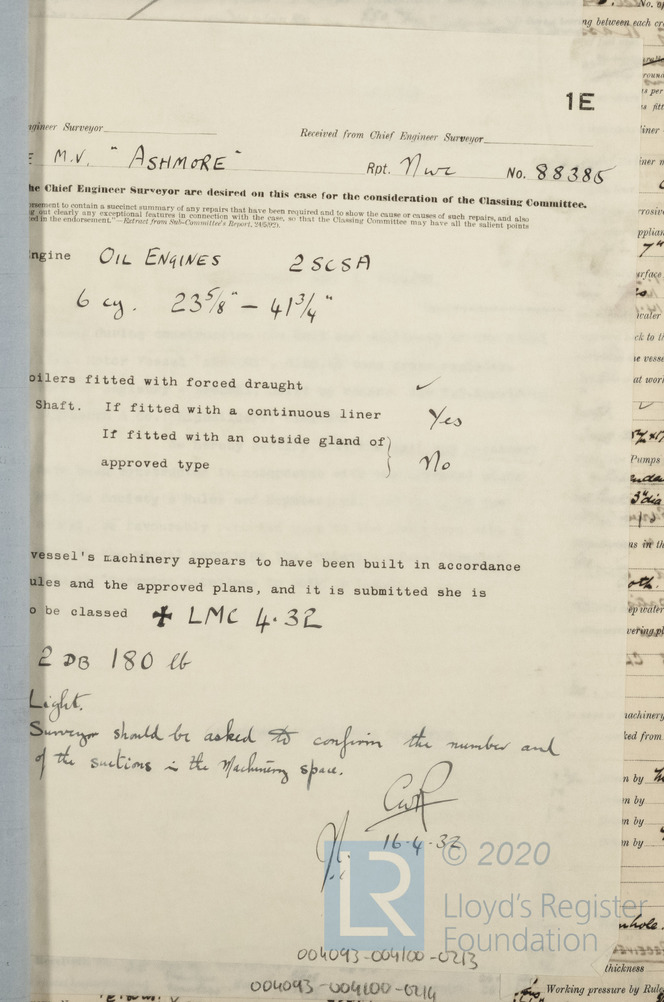 1E
ngineer Surveyor
Received from Chief Engineer Surveyor
M.V. "ASHMORE"
Rpt. Nwc No. 88385
he Chief Engineer Surveyor are desired on this case for the consideration of the Classing Committee.
rsement to contain a succinct summary of any repairs that have been required and to show the cause or causes of such repairs, and also
g out clearly any exceptional features in connection with the case, so that the Classing Committee may have all the salient points
ed in the endorsement."—Extract from Sub-Committee's Report,
ngine OIL ENGINES 2SCSA
6 cy. 23 5/8" — 41 3/4"
oilers fitted with forced draught ✓
Shaft. If fitted with a continuous liner Yes
If fitted with an outside gland of}
approved type No
vessel's machinery appears to have been built in accordance
ules and the approved plans, and it is submitted she is
o be classed ✠ LMC 4.32
2 DB 180 lb
Light.
Surveyor should be asked to confirm the number and
of the suctions in the Machinery space.
16-4-32
© 2020
LR
Lloyd's Register
Foundation
004093-004100-0213
004093-004100-0214
ng between each
as per
liner
7"
water
ck to th
e vesse
at wor
Pumps
3"dia
us in th
ep water
vering pl
machinery
ked from
n by
n by
n by
n by
thickness
Working pressure by Rule